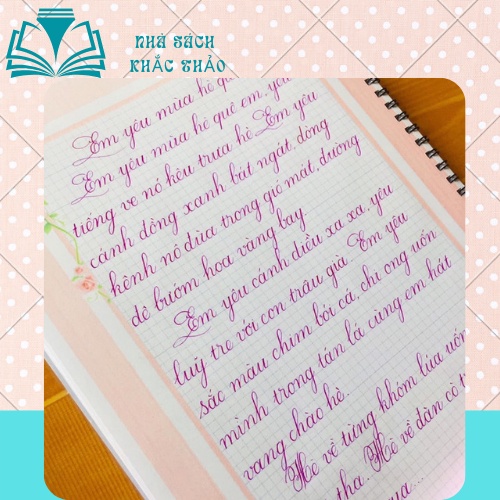 NHÀ SÁCH
KHẮC THẢO
Em yêu mùa hè
Em yêu mùa hè quê em, yêu
tiếng ve nó kêu trưa hè. Em yêu
cánh đồng xanh bát ngát, dòng
kênh nô đùa trong gió mát, đường
đê bướm hoa vàng bay.
Em yêu cánh diều xa xa, yêu
luỹ tre với con trâu già. Em yêu
sắc màu chim bói cá, chị ong uốn
mình trong tán lá cùng em hát
vang chào hè.
Hè về từng khóm lúa uốn
tha. Hè về dân cò